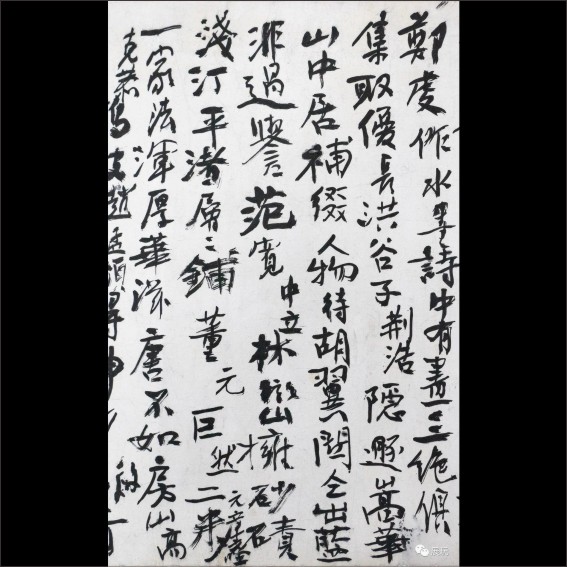 鄭虔作水墨詩中有畫三絶俱
集取優長洪谷子荆浩隱遯嵩華
山中居補綴人物待胡翼關仝出藍
非過譽范寬中立林巒擁沙磧
淺汀平渚層々鋪董元巨然二米元章
一家法渾厚華滋唐不如房山高
克恭 趙孟頫得